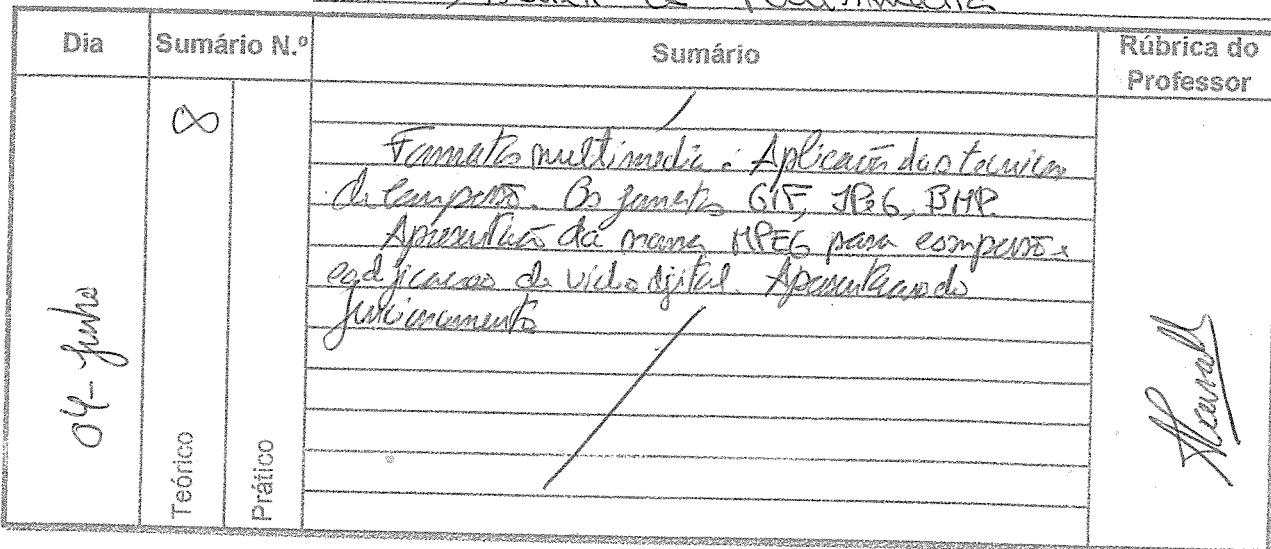 de Multimedia
Dia
Sumário N.º
Sumário
Rúbrica do
Professor
04-Junho
8
Teórico
Prático
Formatos multimedia: Aplicação das tecnicas
de compressão. Os formatos GIF, JPEG, BMP.
Apresentação da norma MPEG para compressão e
codificacao de video digital. Apresentacao do
funcionamento